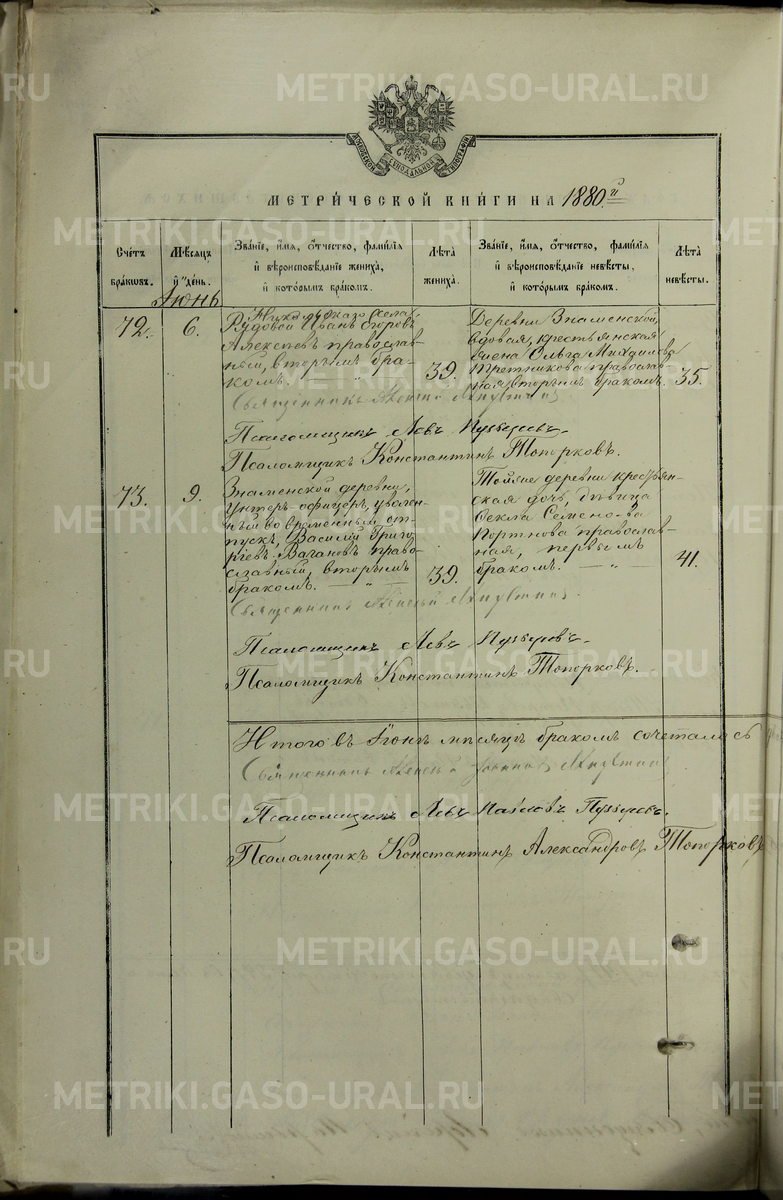 METRIKI.GASO-URAL.RU
МОСКОВСКОЙ СѴНОДАЛЬНОЙ ТИПОГРАФІИ
МЕТРИ́ЧЕСКОЙ КНИ́ГИ НА 1880.й
Счётъ бра́ковъ.
Мѣ́сяцъ и҆ день.
Зва́нїе, и҆́мя, ѻ҆́тчество, фами́лїя и҆ вѣроисповѣ́данїе жениха̀, и҆ кото́рымъ бра́комъ.
Лѣ́та жениха̀.
Зва́нїе, и҆́мя, ѻ҆́тчество, фами́лїя и҆ вѣроисповѣ́данїе невѣ́сты, и҆ кото́рымъ бра́комъ.
Лѣ́та невѣ́сты.
Іюнь
72. 6.
Рядовой Иванъ Егоровъ
Алексѣевъ православ-
ный, вторымъ бра-
комъ. 39.
Деревни Знаменской,
вдовая, крестьянская
жена Ольга Михайлова
православ-
ная, вторымъ бракомъ. 35.
Священникъ Алексій
Псаломщикъ Левъ
Псаломщикъ Константинъ Топорковъ.
73. 9.
Знаменской деревни,
унтеръ-офицеръ, уволен-
ный во временный от-
пускъ, Василий Григо-
рьевъ Вагановъ право-
славный, вторымъ
бракомъ. — „ — 39.
Тойже деревни крестьян-
ская дочь, дѣвица
Фекла Семенова
Портнова православ-
ная, первымъ
бракомъ. — „ — 41.
Священникъ Алексій
Псаломщикъ Левъ
Псаломщикъ Константинъ Топорковъ.
Итого въ Іюнѣ мѣсяцѣ бракомъ сочеталось
Священникъ Алексій
Псаломщикъ Левъ Павловъ
Псаломщикъ Константинъ Александровъ Топорковъ